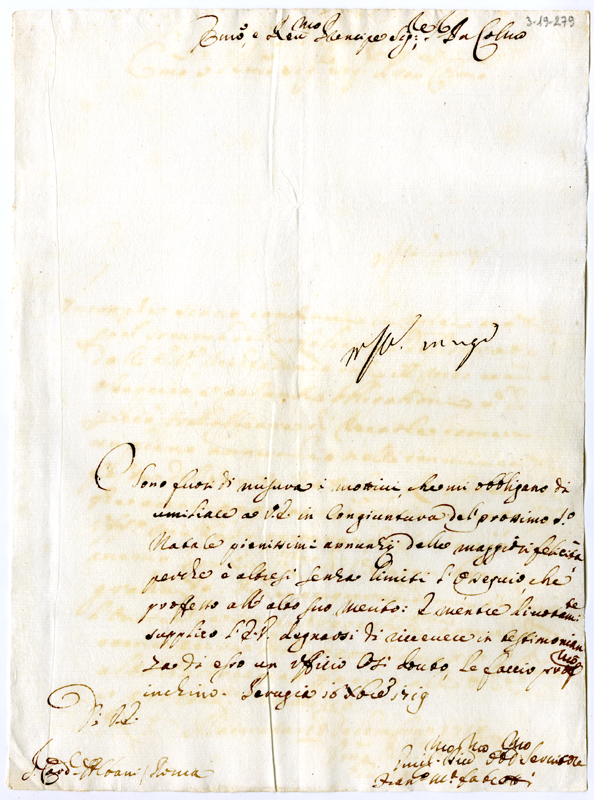 3-19-279
Emo, e Rmo Prencipe Sig:re
Sono fuori di misura i mottivi, che mi obbligano di
umiliare a V.E. in Congiuntura del prossimo S.o
Natale pienissimi annunzij delle maggiori felicità
perche è altresi senza limiti l'Ossequio che
professo all'alto suo merito: E mentre divotamte
supplico l'E.V. degnarsi di ricevere in testimonian
za di esso un Officio Così douto, le faccio
inchino. Perugia 16 Xbre 1719
Di V.E.
Sr. Card. Albani / Roma
Umo Dmo Obbmo Servitore
Franco Ma